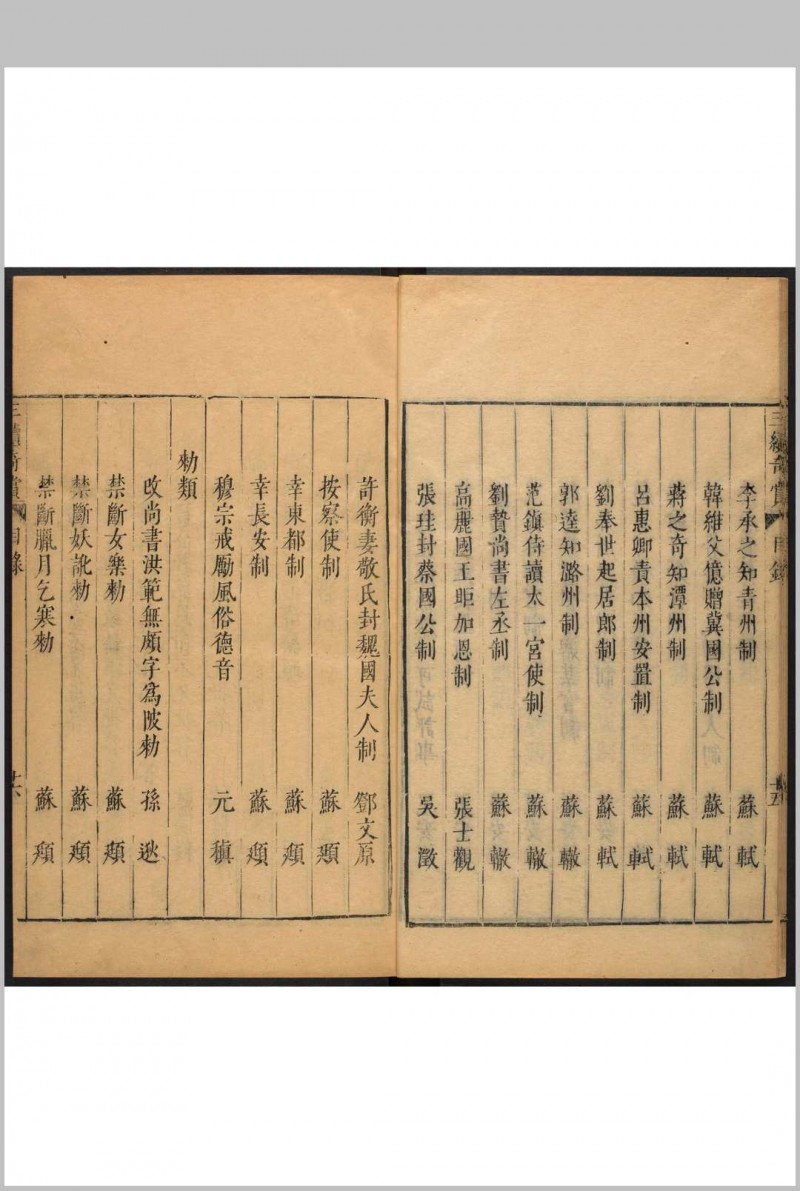 三續奇賞 目錄 十五
李承之知青州制 蘇軾
韓維父億贈冀國公制 蘇軾
蔣之奇知潭州制 蘇軾
呂惠卿責本州安置制 蘇軾
劉奉世起居郎制 蘇軾
郭逵知潞州制 蘇轍
范鎮侍讀太一宮使制 蘇轍
劉贄尚書左丞制 蘇轍
高麗國王昛加恩制 張士觀
張珪封蔡國公制 吳澂
許衡妻敬氏封魏國夫人制 鄧文原
按察使制 蘇頲
幸東都制 蘇頲
幸長安制 蘇頲
穆宗戒勵風俗德音 元稹
勑類
改尚書洪範無頗字爲陂勑 孫逖
禁斷女樂勑 蘇頲
禁斷妖訛勑 蘇頲
禁斷臘月乞寒勑 蘇頲
三續奇賞 目錄 十六